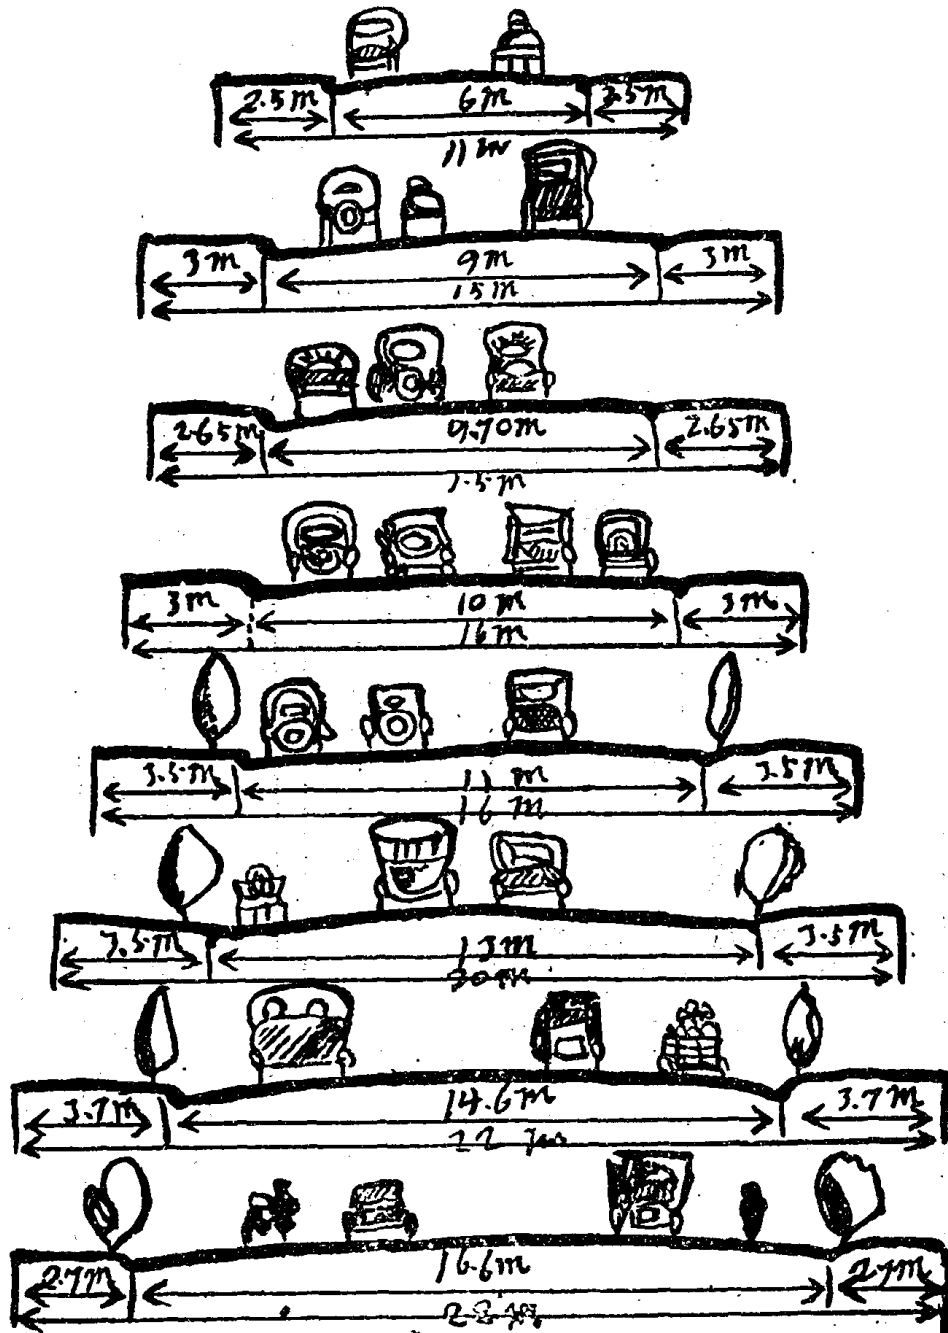 2.5m 6m 2.5m
11m
3m 9m 3m
15m
2.65m 9.70m 2.65m
3m 10m 3m
16m
3.5m 11m 3.5m
16m
3.5m 13m 3.5m
20m
3.7m 14.6m 3.7m
22
2.7m 16.6m 2.7m